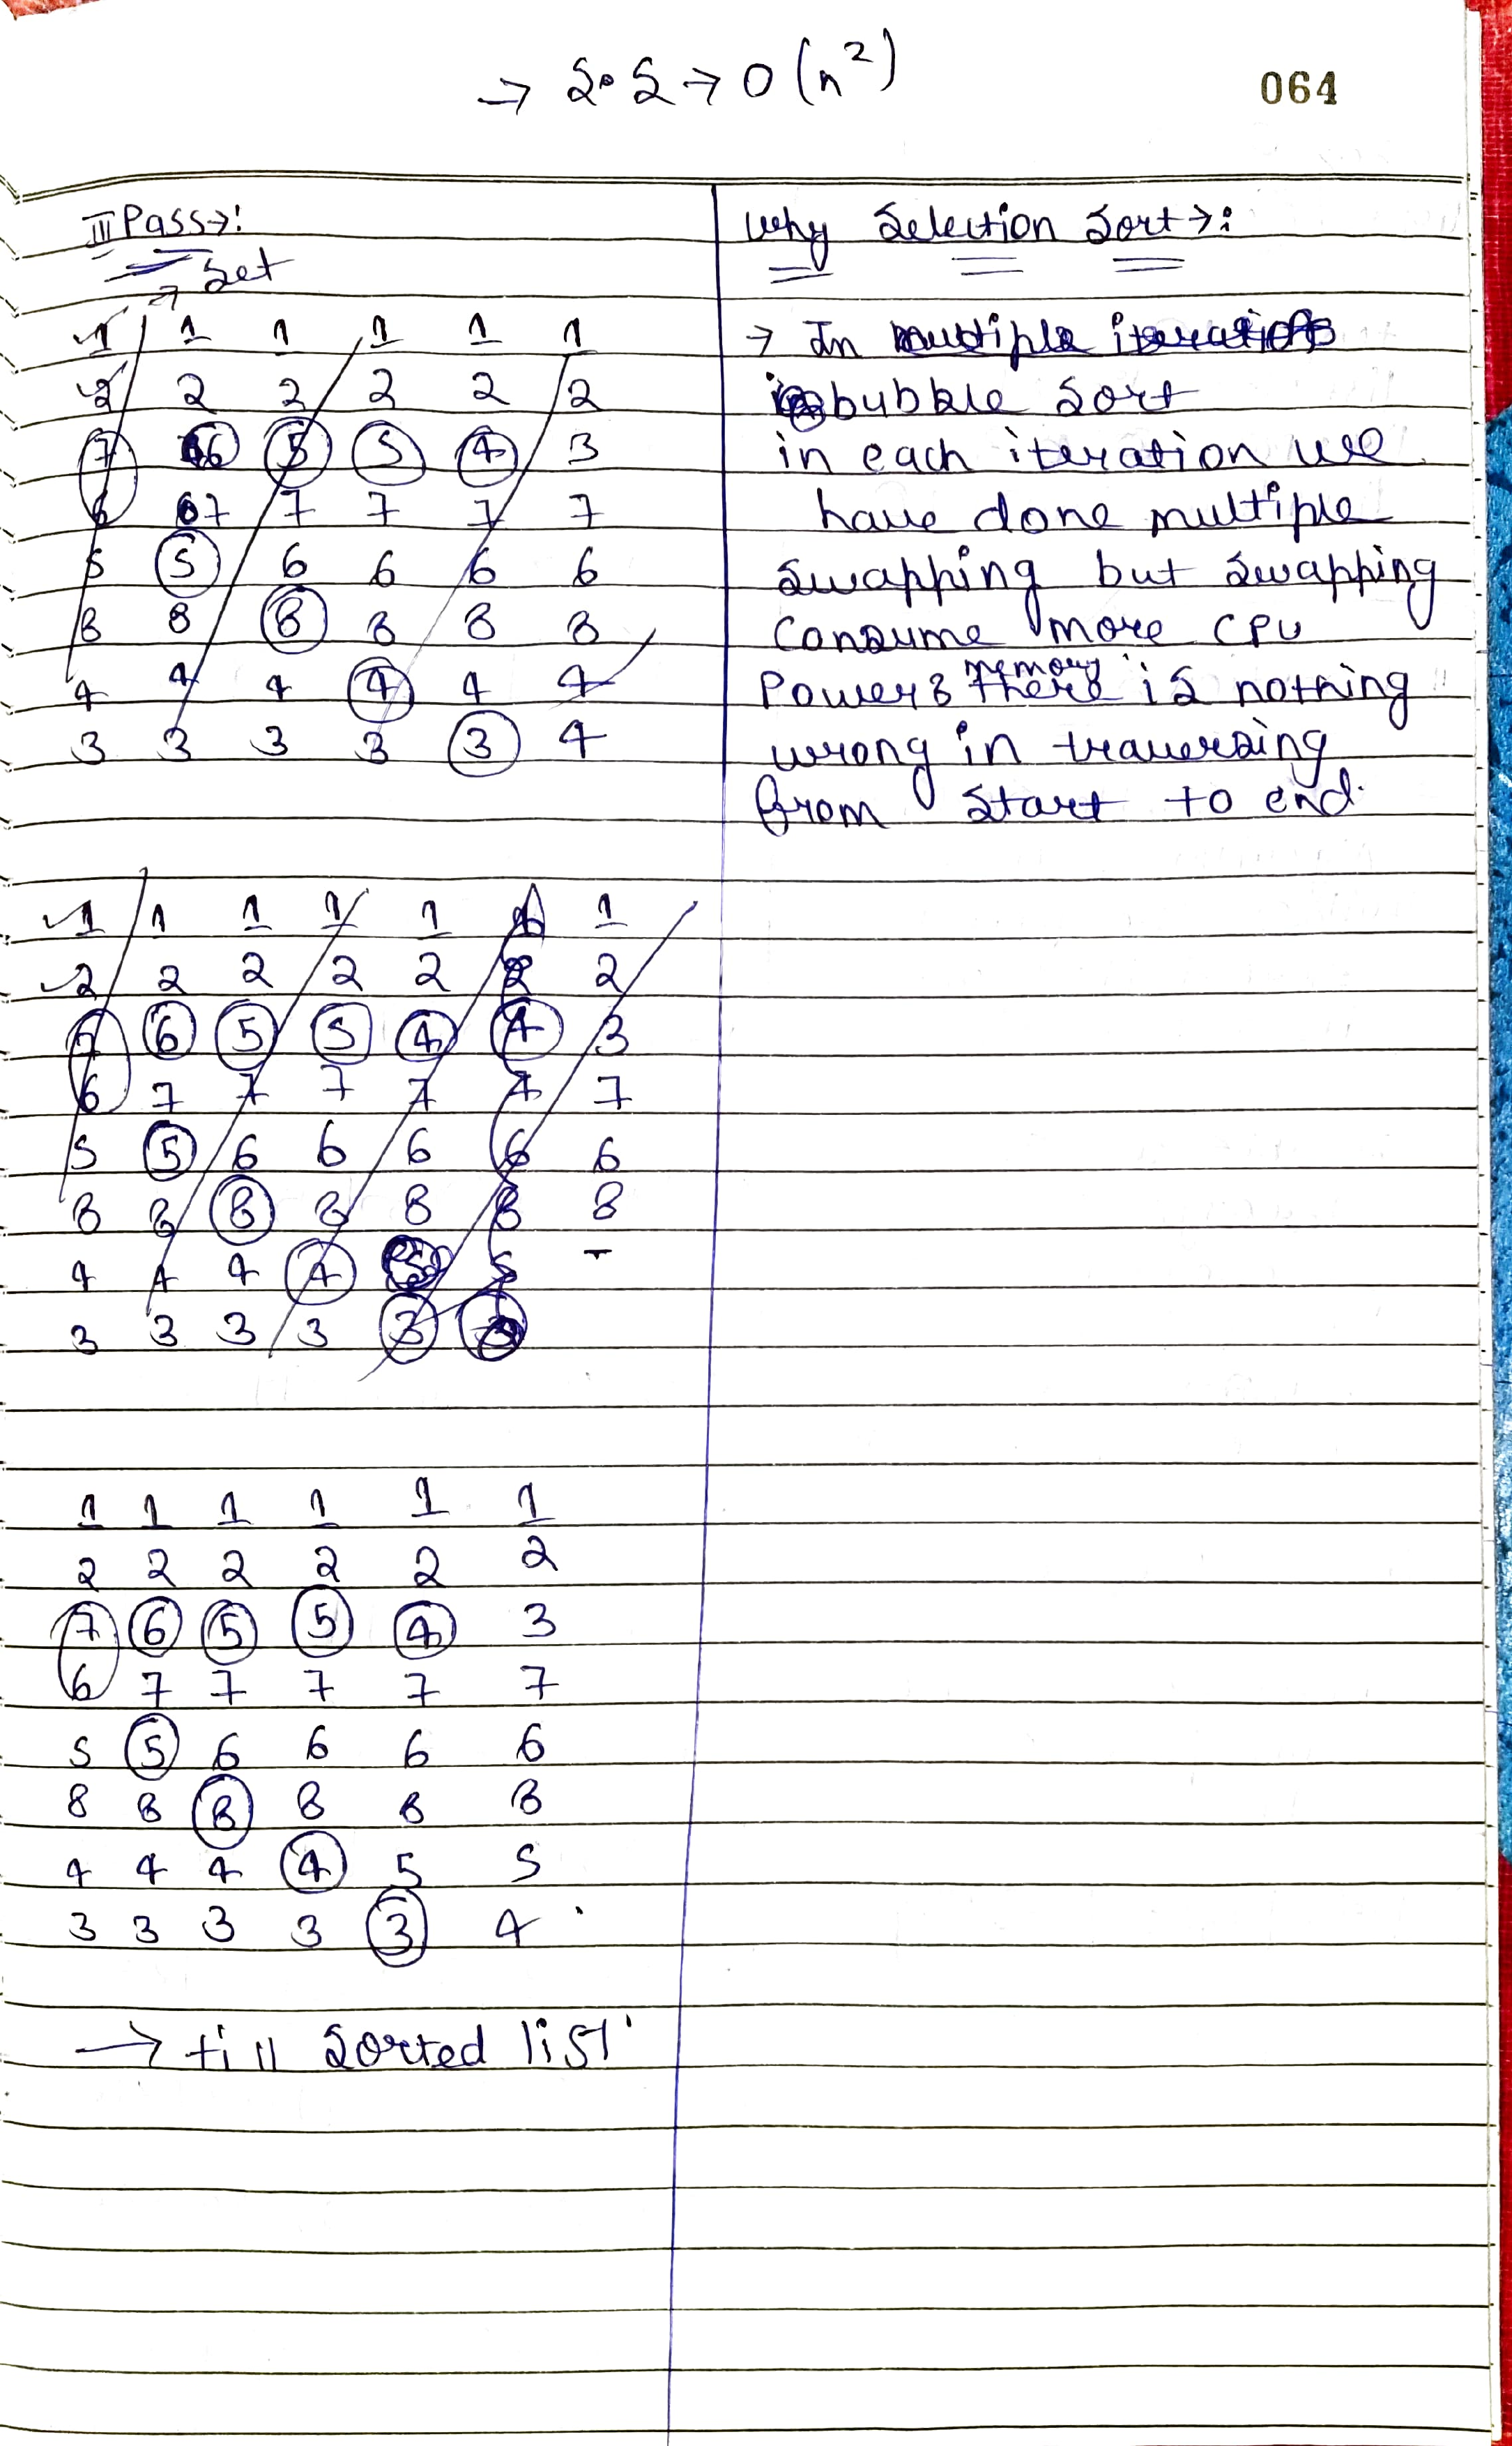 → S.S → O(n²)
064
III Pass→:
→ Set
1 1 1 1 1 1
2 2 2 2 2 2
7 6 5 5 4 3
6 7 7 7 7 7
5 5 6 6 6 6
8 8 8 8 8 8
4 4 4 4 4 4
3 3 3 3 3 4
1 1 1 1 1 1 1
2 2 2 2 2 2 2
7 6 5 5 4 4 3
6 7 7 7 7 7 7
5 5 6 6 6 6 6
8 8 8 8 8 8 8
4 4 4 4 5
3 3 3 3 3 3
1 1 1 1 1 1
2 2 2 2 2 2
7 6 5 5 4 3
6 7 7 7 7 7
5 5 6 6 6 6
8 8 8 8 8 8
4 4 4 4 5 5
3 3 3 3 3 4
→ till Sorted list
Why Selection Sort→:
→ In multiple iterations
bubble sort
in each iteration we
have done multiple
swapping but swapping
consume more CPU
memory
Power & there is nothing
wrong in traversing
from start to end.